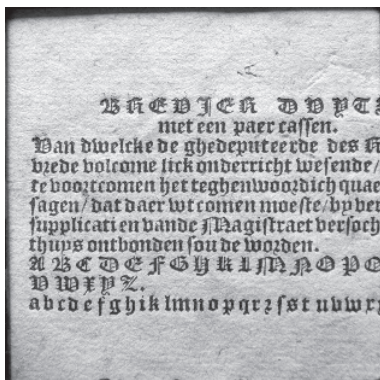 BREVIER DVYTS
met een paer cassen.
Van dwelcke de ghedeputeerde des
vrede volcome lick onderricht wesende/
te voortcomen het teghenwoordich quae
sagen/ dat daer wt comen moeste/ by ver
supplicati en vande Magistraet versoch
thuys ontbonden sou de worden.
A B C D E F G H I K L M N O P Q
V W X Y Z.
a b c d e f g h i k l m n o p q r ꝛ ſ s t u v w x y